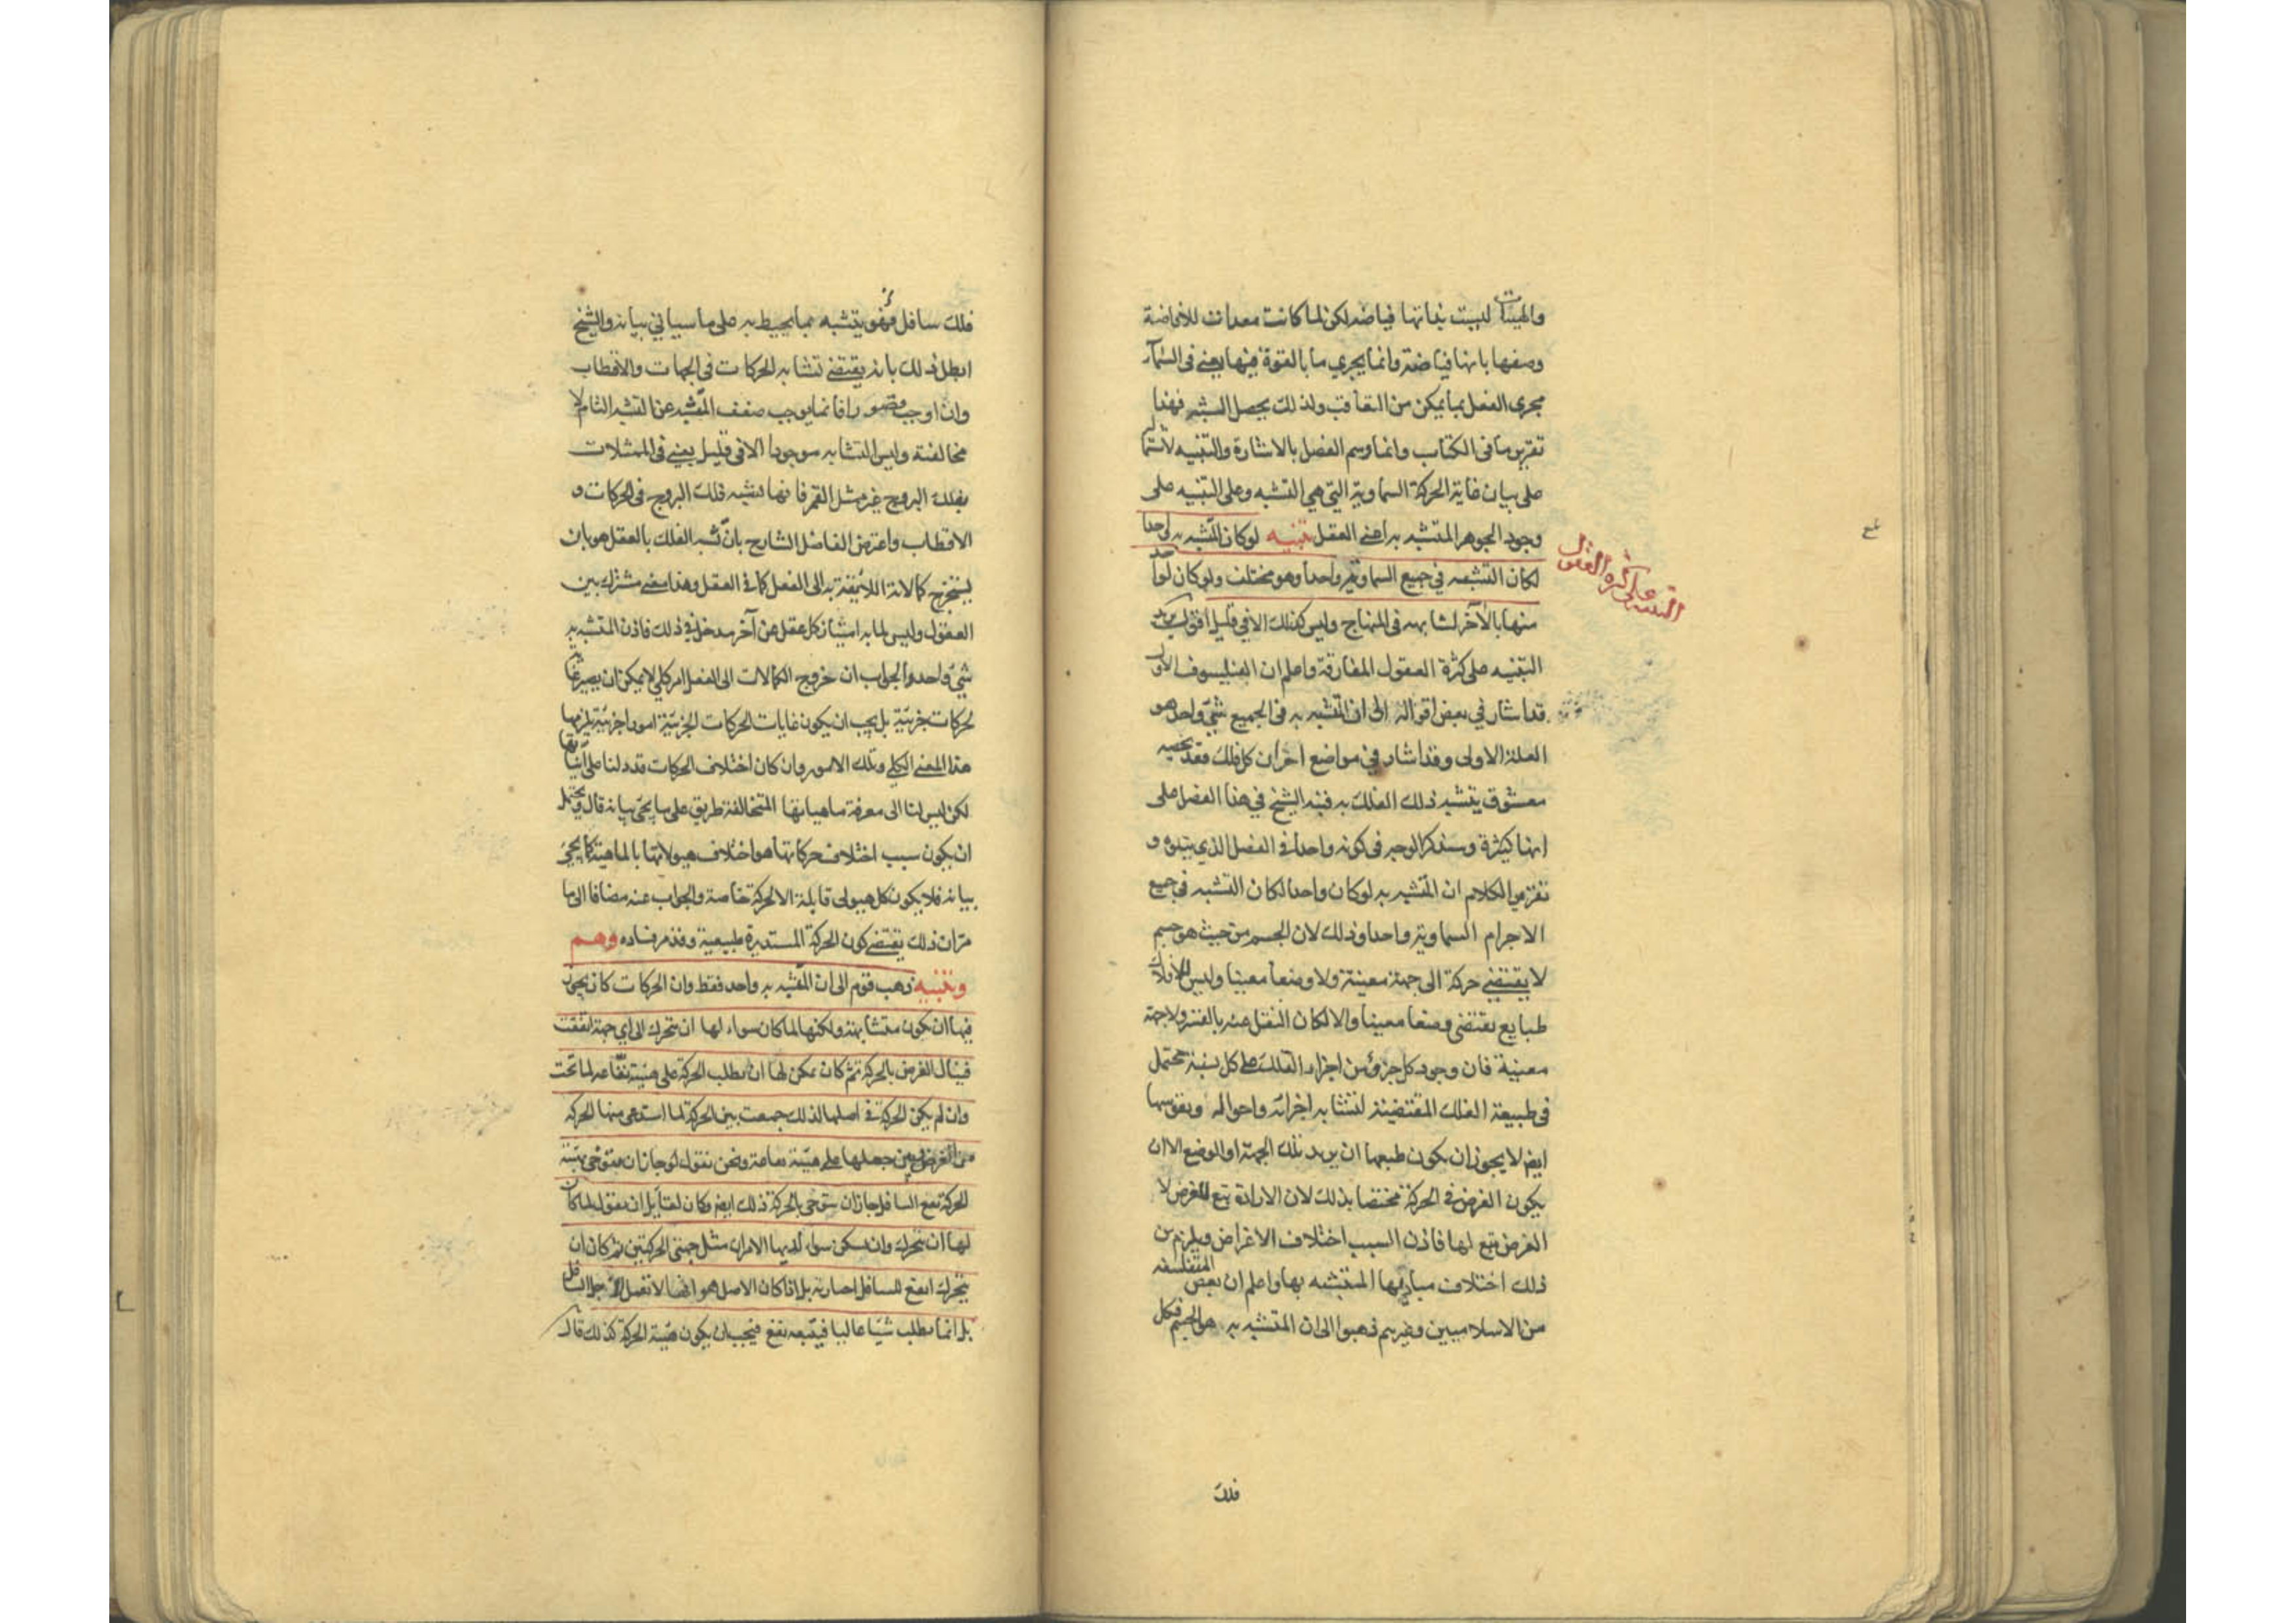 والهيئات ليست بذاتها فياضة لكن لما كانت معدات للافاضة
وصفها بانها فياضة وانما يجري ما بالقوة فيها يعنى فى السماء
مجرى الفعل بما يمكن من التعاقب ولذلك يحصل التشبه فهذا
تقرير ما فى الكتاب وانما وسم الفصل بالاشارة والتنبيه لاشتماله
على بيان غاية الحركة السماوية التي هي التشبه وعلى التنبيه على
وجود الجوهر المتشبه به اعنى العقل تنبيه لو كان المتشبه به واحدا
لكان التشبه في جميع السماوية واحدا وهو مختلف ولو كان لواحد
منها بالآخر لشابهه فى المنهاج وليس كذلك الا في قليل اقول يريد
التنبيه على كثرة العقول المفارقة واعلم ان الفيلسوف الاول
قد اشار في بعض اقواله الى ان المتشبه به فى الجميع شيء واحد هو
العلة الاولى وقد اشار في مواضع اخر ان كل فلك فقد يخصه
معشوق يتشبه ذلك الفلك به فنبه الشيخ في هذا الفصل على
انها كثيرة وسنذكر الوجه فى كونه واحدا فى الفصل الذي يتلوه و
تقرير الكلام ان المتشبه به لو كان واحدا لكان التشبه في جميع
الاجرام السماوية واحدا وذلك لان الجسم من حيث هو جسم
لا يقتضي حركة الى جهة معينة ولا وضعا معينا وليس للافلاك
طبايع يقتضى وضعا معينا والا لكان النقل عنه بالقسر ولا جهة
معينة فان وجود كل جزؤ من اجزاء الفلك على كل نسبة محتمل
فى طبيعة الفلك المقتضية لتشابه اجزائه واحواله ونفوسها
ايضا لا يجوز ان يكون طبعها ان يريد تلك الجهة او الوضع الا ان
يكون الغرض فى الحركة مختصا بذلك لان الارادة تبع للغرض لا
الغرض تبع لها فاذن السبب اختلاف الاغراض ويلزم من
ذلك اختلاف مباديها المتشبه بها واعلم ان بعض المتفلسفة
من الاسلاميين وغيرهم ذهبوا الى ان المتشبه به هو الجسم فكل
فلك
التنبيه على كثرة العقول
فلك سافل فهو يتشبه بما يحيط به على ما سياتي بيانه والشيخ
ابطل ذلك بانه يقتضي تشابه الحركات فى الجهات والاقطاب
وان اوجب قصورا فانما يوجب ضعف المتشبه عن التشبه التام لا
مخالفته وليس التشابه موجودا الا فى قليل يعنى فى الممثلات
بفلك البروج غير ممثل القمر فانها تشبه فلك البروج فى الحركات و
الاقطاب واعترض الفاضل الشارح بان تشبه الفلك بالعقل هو بان
يستخرج كمالاته اللايقة به الى الفعل كما فى العقل وهذا معنى مشترك بين
العقول وليس لما به امتياز كل عقل عن آخر مدخل في ذلك فاذن المتشبه به
شيء واحد والجواب ان خروج الكمالات الى الفعل امر كلي لا يمكن ان يصير غاية
لحركات جزئية بل يجب ان يكون غايات الحركات الجزئية امورا جزئية يلزمها
هذا المعنى الكلي وتلك الامور وان كان اختلاف الحركات قد دلنا على اثباتها
لكن ليس لنا الى معرفة ماهياتها المتخالفة طريق على ما يجئ بيانه قال ويحتمل
ان يكون سبب اختلاف حركاتها هو اختلاف هيولاتها بالماهية كما يجئ
بيانه فلا يكون كل هيولى قابلة الا لحركة خاصة والجواب عنه مضافا الى ما
مر ان ذلك يقتضي كون الحركة المستديرة طبيعية وقد مر فساده وهم
وتنبيه ذهب قوم الى ان المتشبه به واحد فقط وان الحركات كان يجوز
فيها ان يكون متشابهة ولكنها لما كان سواء لها ان يتحرك الى اي جهة اتفقت
فينال الغرض بالحركة ثم كان يمكن لها ان يطلب الحركة على هيئة نفاعة لما تحت
وان لم يكن الحركة فى اصلها لذلك جمعت بين الحركة لما استدعى منها الحركة
من الغرض وبين جعلها على هيئة نفاعة ونحن نقول لو جاز ان يتوخى بهيئة
الحركة نفع السافل جاز ان يتوخى بالحركة ذلك ايضا وكان لقايل ان يقول لما كان
لها ان يتحرك وان يسكن سواء لديها الامران مثل جهتى الحركتين ثم كان ان
يتحرك انفع للسافل اختارته بل اذا كان الاصل هو انها لا تفعل لاجل السافل
بل انما يطلب شيئا عاليا فيتبعه نفع فيجب ان يكون هيئة الحركة كذلك قال